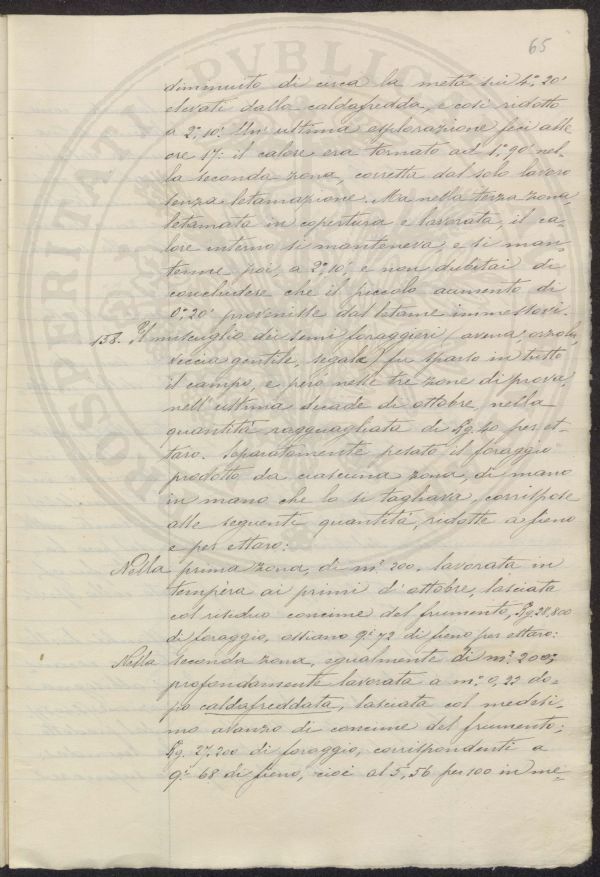 65
diminuito di circa la metá sui 4°, 20'
elevati dalla caldafredda, e cosí ridotto
a 2°, 10'. Un' ultima esplorazione feci alle
ore 17: il calore era tornato ad 1°, 90 nel-
la seconda zona, corretta dal solo lavoro
senza letamazione. Ma nella terza zona,
letamata in copertura e lavorata, il ca-
lore interno si manteneva, e si man-
tenne poi, a 2°, 10', e non dubitai di
conchiudere che il piccolo aumento di
0°, 20' provenisse dal letame immessovi.
138. Il miscuglio dei semi foraggieri (avena, orzola,
veccia gentile, segale) fu sparso in tutto
il campo, e peró nelle tre zone di prova,
nell' ultima decade di ottobre, nella
quantitá ragguagliata di Kg. 40 per et-
taro. Separatamente pesato il foraggio
prodotto da ciascuna zona, di mano
in mano che lo si tagliava, corrispose
alle seguenti quantitá, ridotte a fieno
e per ettaro:
Nella prima zona, di m² 200, lavorata in
tempèra ai primi d' ottobre, lasciata
col residuo concime del frumento, Kg. 28,800
di foraggio, ossiano q.li 72 di fieno per ettaro:
Nella seconda zona, egualmente di m² 200,
profondamente lavorata a m. 0,22 do-
po caldafreddata, lasciata col medesi-
mo avanzo di concime del frumento;
Kg. 27,200 di foraggio, corrispondenti a
q.li 68 di fieno, cioé al 5,56 per 100 in me-
PROSPERITATI PVBLIC